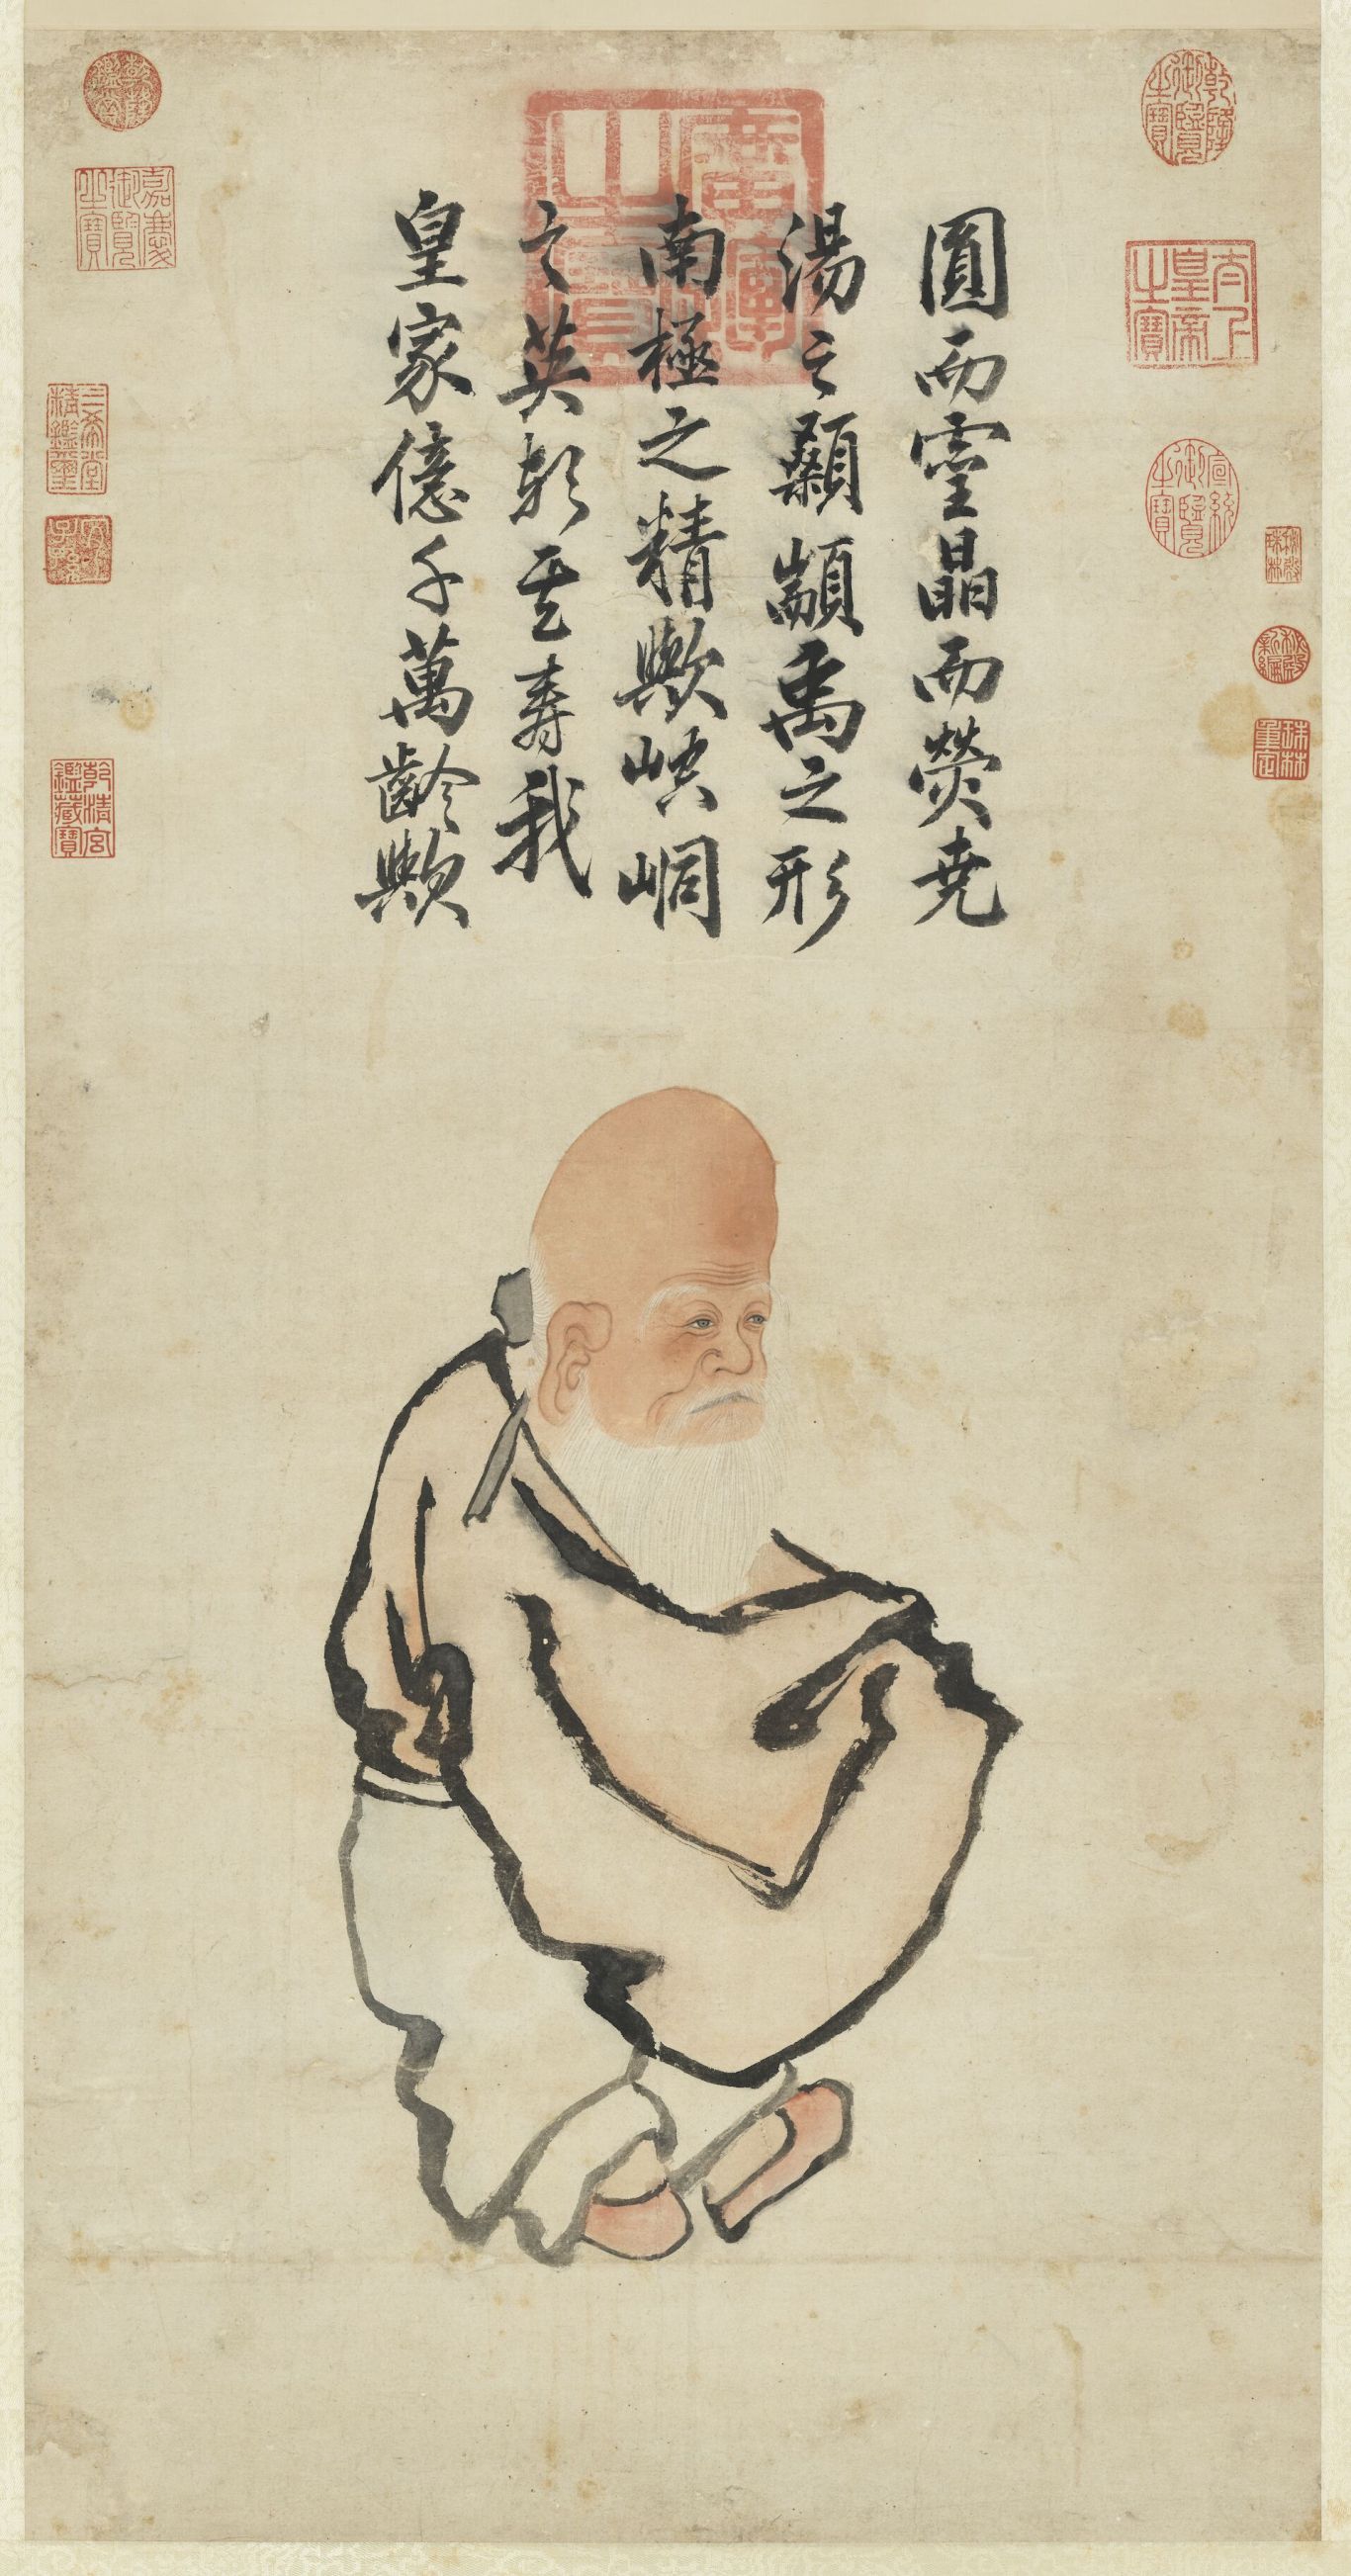 圓而霊晶而熒堯
湯之顙顓禹之形
南極之精歟崆峒
之英歟其壽我
皇家億千萬齡歟
廣運之寶
乾隆御覽之寶
太上皇帝之寶
宣統御覽之寶
秘殿珠林
秘殿新編
珠林重定
乾隆鑑賞
嘉慶御覽之寶
三希堂精鑑璽
宜子孫
乾清宮鑑藏寶